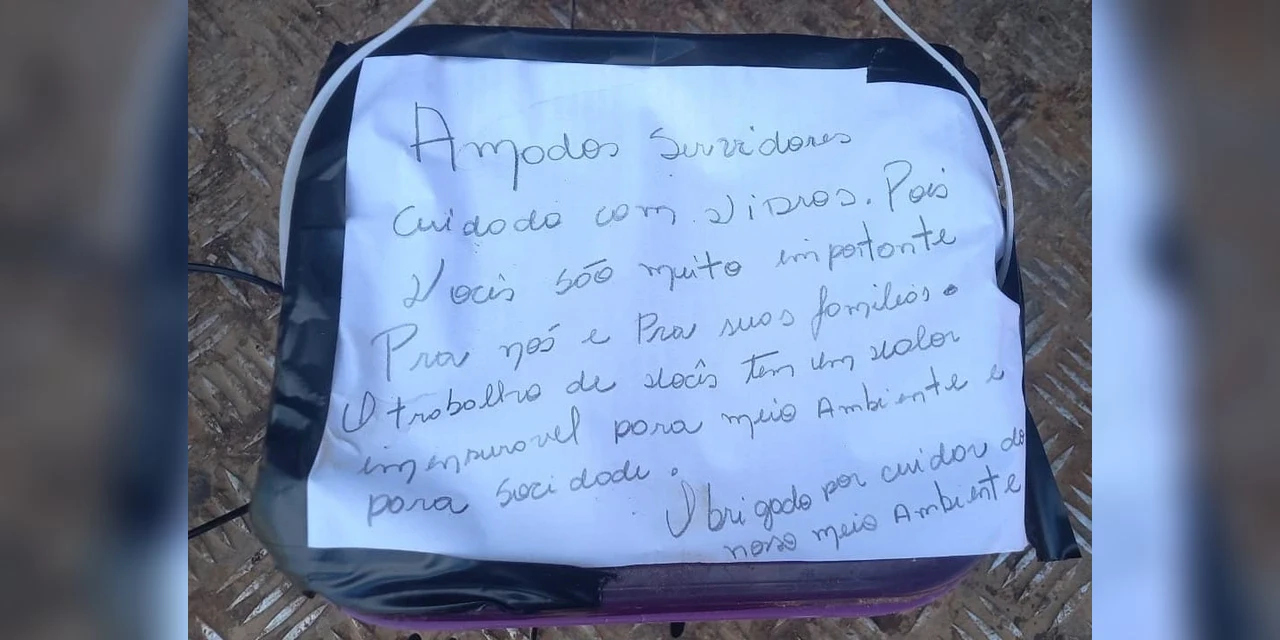 Amodos Servidores
cuidado com vidros. Pois
Vocês são muito importante
Pra nós e Pra suas famílias.
O trabalho de vocês tem um valor
imensuravel para meio Ambiente e
para socidade.
Obrigado por cuidar do
noso meio Ambiente